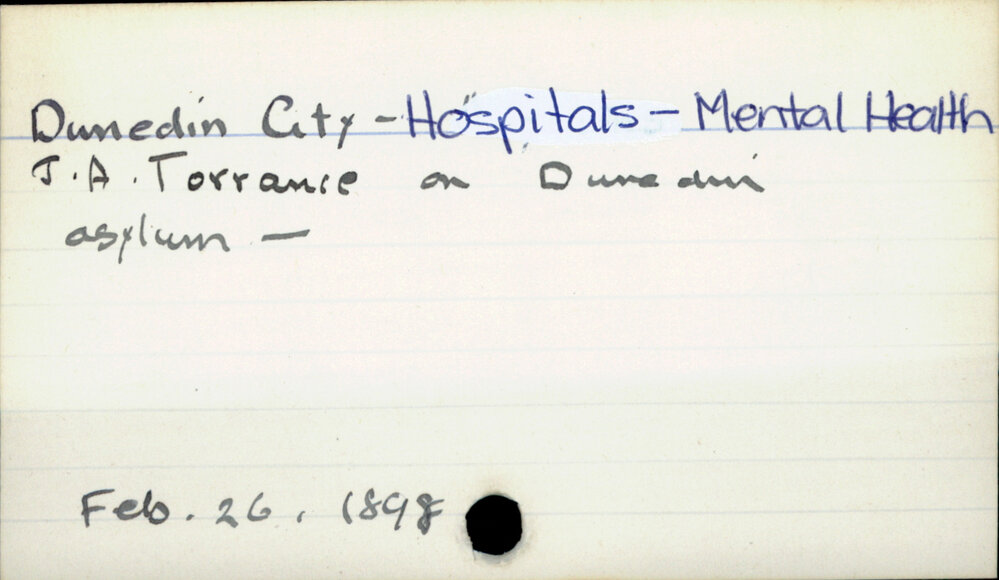 Dunedin City - Hospitals - Mental Health
J. A. Torrance on Dunedin
asylum —
Feb. 26, 1898